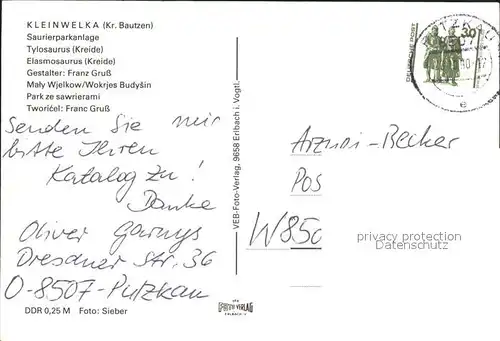 KLEINWELKA (Kr. Bautzen)
Saurierparkanlage
Tylosaurus (Kreide)
Elasmosaurus (Kreide)
Gestalter: Franz Gruß
Mały Wjelkow/Wokrjes Budyšin
Park ze sawrierami
Tworićel: Franc Gruß
Senden Sie mir
bitte Ihren
Katalog zu!
Danke
Oliver
Dresdner Str. 36
O-8507-Putzkau
DDR 0,25 M Foto: Sieber
VEB-Foto-Verlag, 9658 Erlbach i. Vogtl.
FOTO VERLAG
ERLBACH
DEUTSCHE POST
30
PUTZKAU
8507
e
Arznei-Becker
Pos
W850
privacy protection
Datenschutz